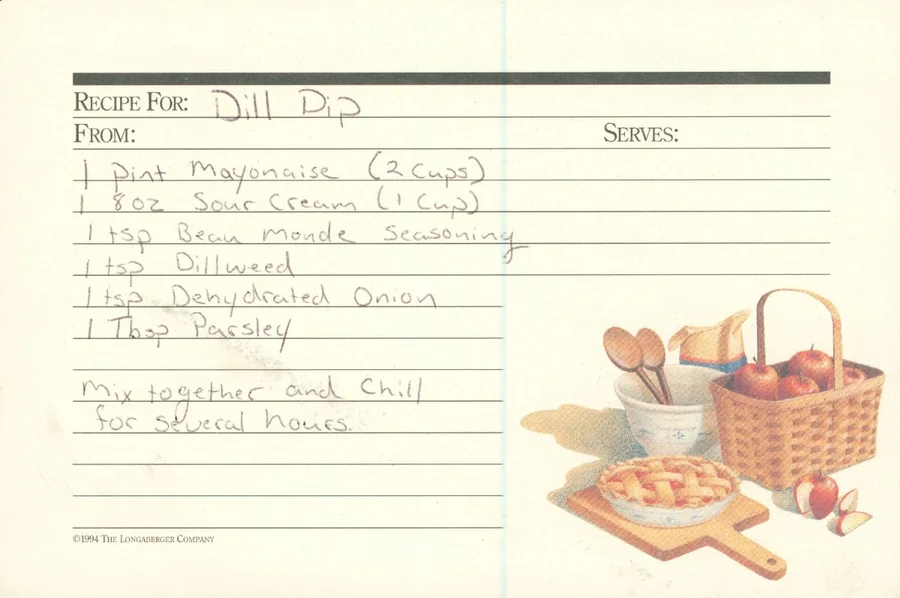 RECIPE FOR: Dill Dip
FROM: SERVES:
1 pint Mayonaise (2 Cups)
1 8oz Sour Cream (1 Cup)
1 tsp Beau monde seasoning
1 tsp Dillweed
1 tsp Dehydrated Onion
1 Tbsp Parsley
Mix together and Chill
for several hours.
©1994 THE LONGABERGER COMPANY